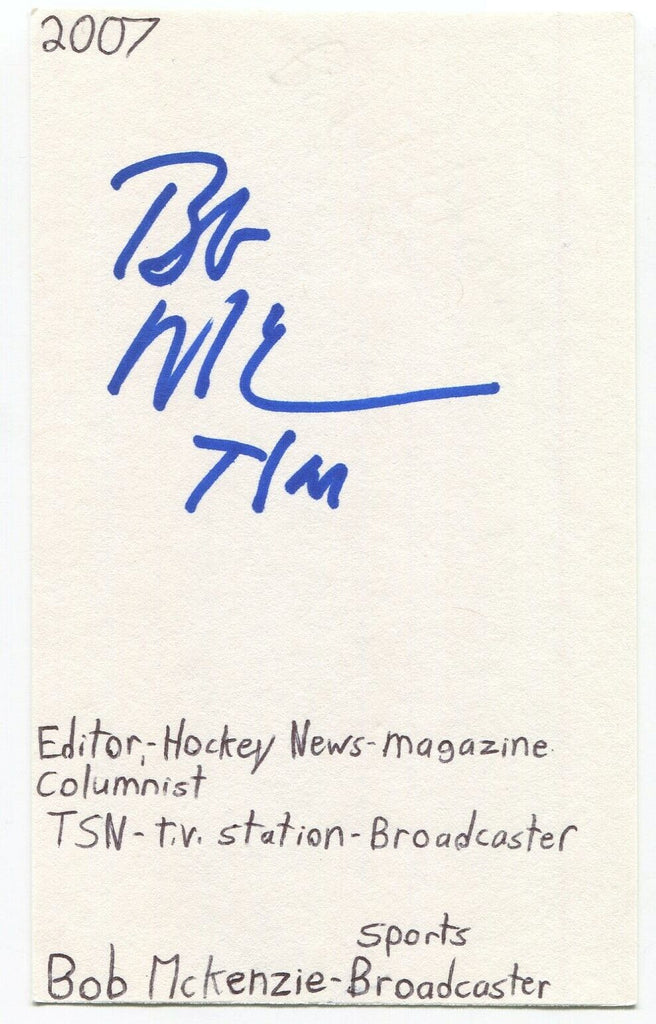 2007
Bob
Editor,-Hockey News-magazine
Columnist
TSN-t.v. station-Broadcaster
sports
Bob Mckenzie-Broadcaster